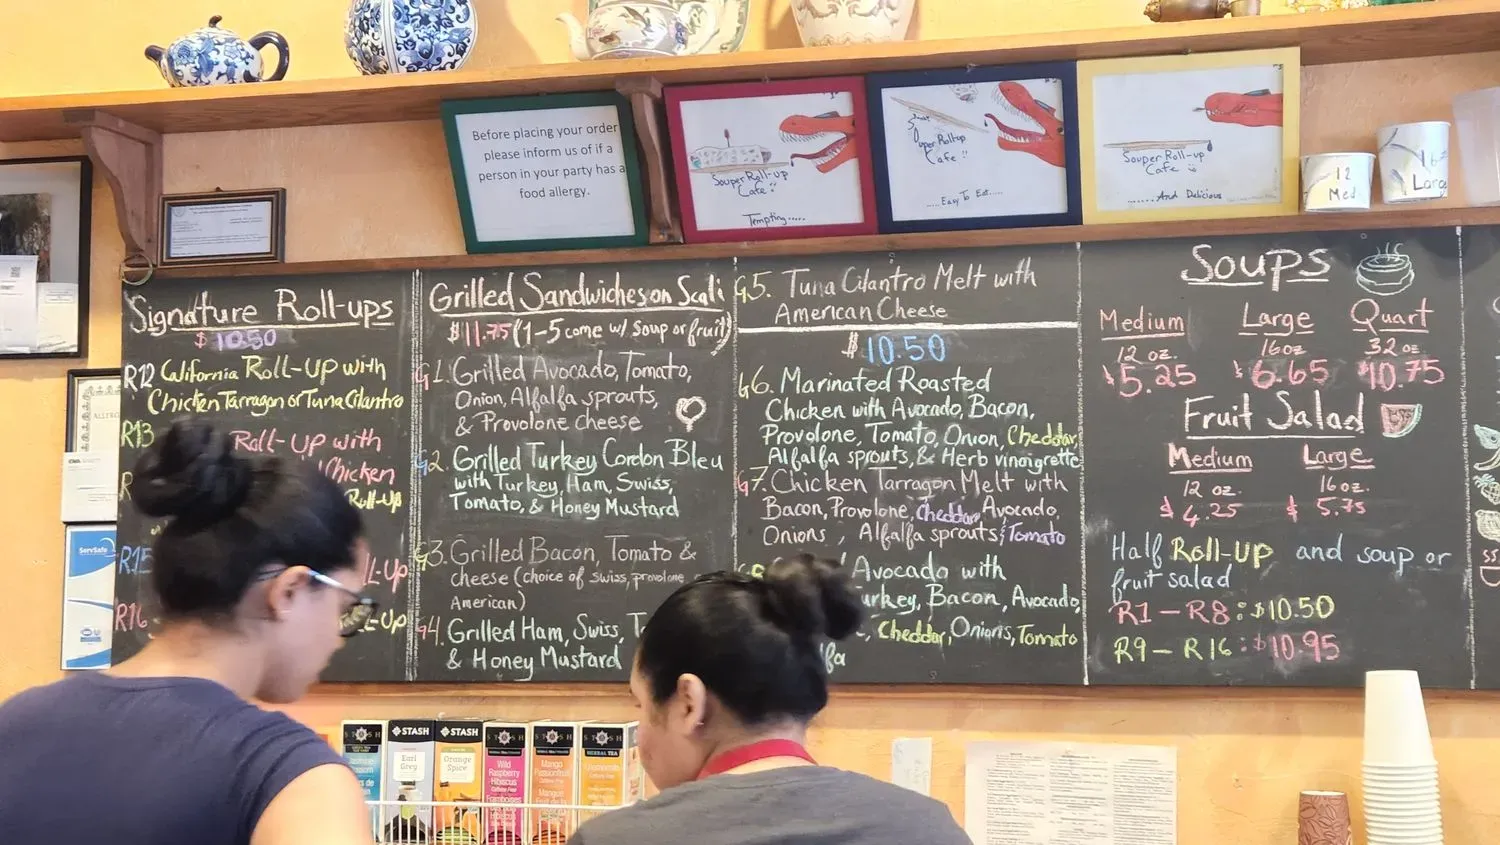 Before placing your order
please inform us of if a
person in your party has a
food allergy.
Souper Roll-up
Cafe
Tempting.....
Cafe !!
....Easy To Eat.....
Souper Roll-up
Cafe
......And Delicious
12
Med
16
Larg
Signature Roll-ups
$10.50
R12 California Roll-Up with
Chicken Tarragon or Tuna Cilantro
R13
Roll-Up with
Chicken
Roll-Up
R15
R16
Grilled Sandwiches on Scali
$11.75 (1-5 come w/ soup or fruit)
G1. Grilled Avocado, Tomato,
Onion, Alfalfa sprouts,
& Provolone cheese
G2. Grilled Turkey Cordon Bleu
with Turkey, Ham, Swiss,
Tomato, & Honey Mustard
G3. Grilled Bacon, Tomato &
cheese (choice of swiss, provolone
American)
G4. Grilled Ham, Swiss, T
& Honey Mustard
G5. Tuna Cilantro Melt with
American Cheese
$10.50
G6. Marinated Roasted
Chicken with Avocado, Bacon,
Provolone, Tomato, Onion, Cheddar,
Alfalfa sprouts, & Herb vinaigrette
G7. Chicken Tarragon Melt with
Bacon, Provolone, Cheddar, Avocado,
Onions, Alfalfa sprouts & Tomato
Avocado with
urkey, Bacon, Avocado,
Cheddar, Onions, Tomato
fa
Soups
Medium Large Quart
12 oz. 16 oz 32 oz
$5.25 $6.65 $10.75
Fruit Salad
Medium Large
12 oz. 16 oz.
$4.25 $5.75
Half Roll-Up and soup or
fruit salad
R1 – R8 : $10.50
R9 – R16 : $10.95
ServSafe
STASH
Earl
Grey
STASH
Orange
Spice
STASH
Wild
Raspberry
Hibiscus
STASH
Mango
Passionfruit
STASH
HERBAL TEA
Chamomile